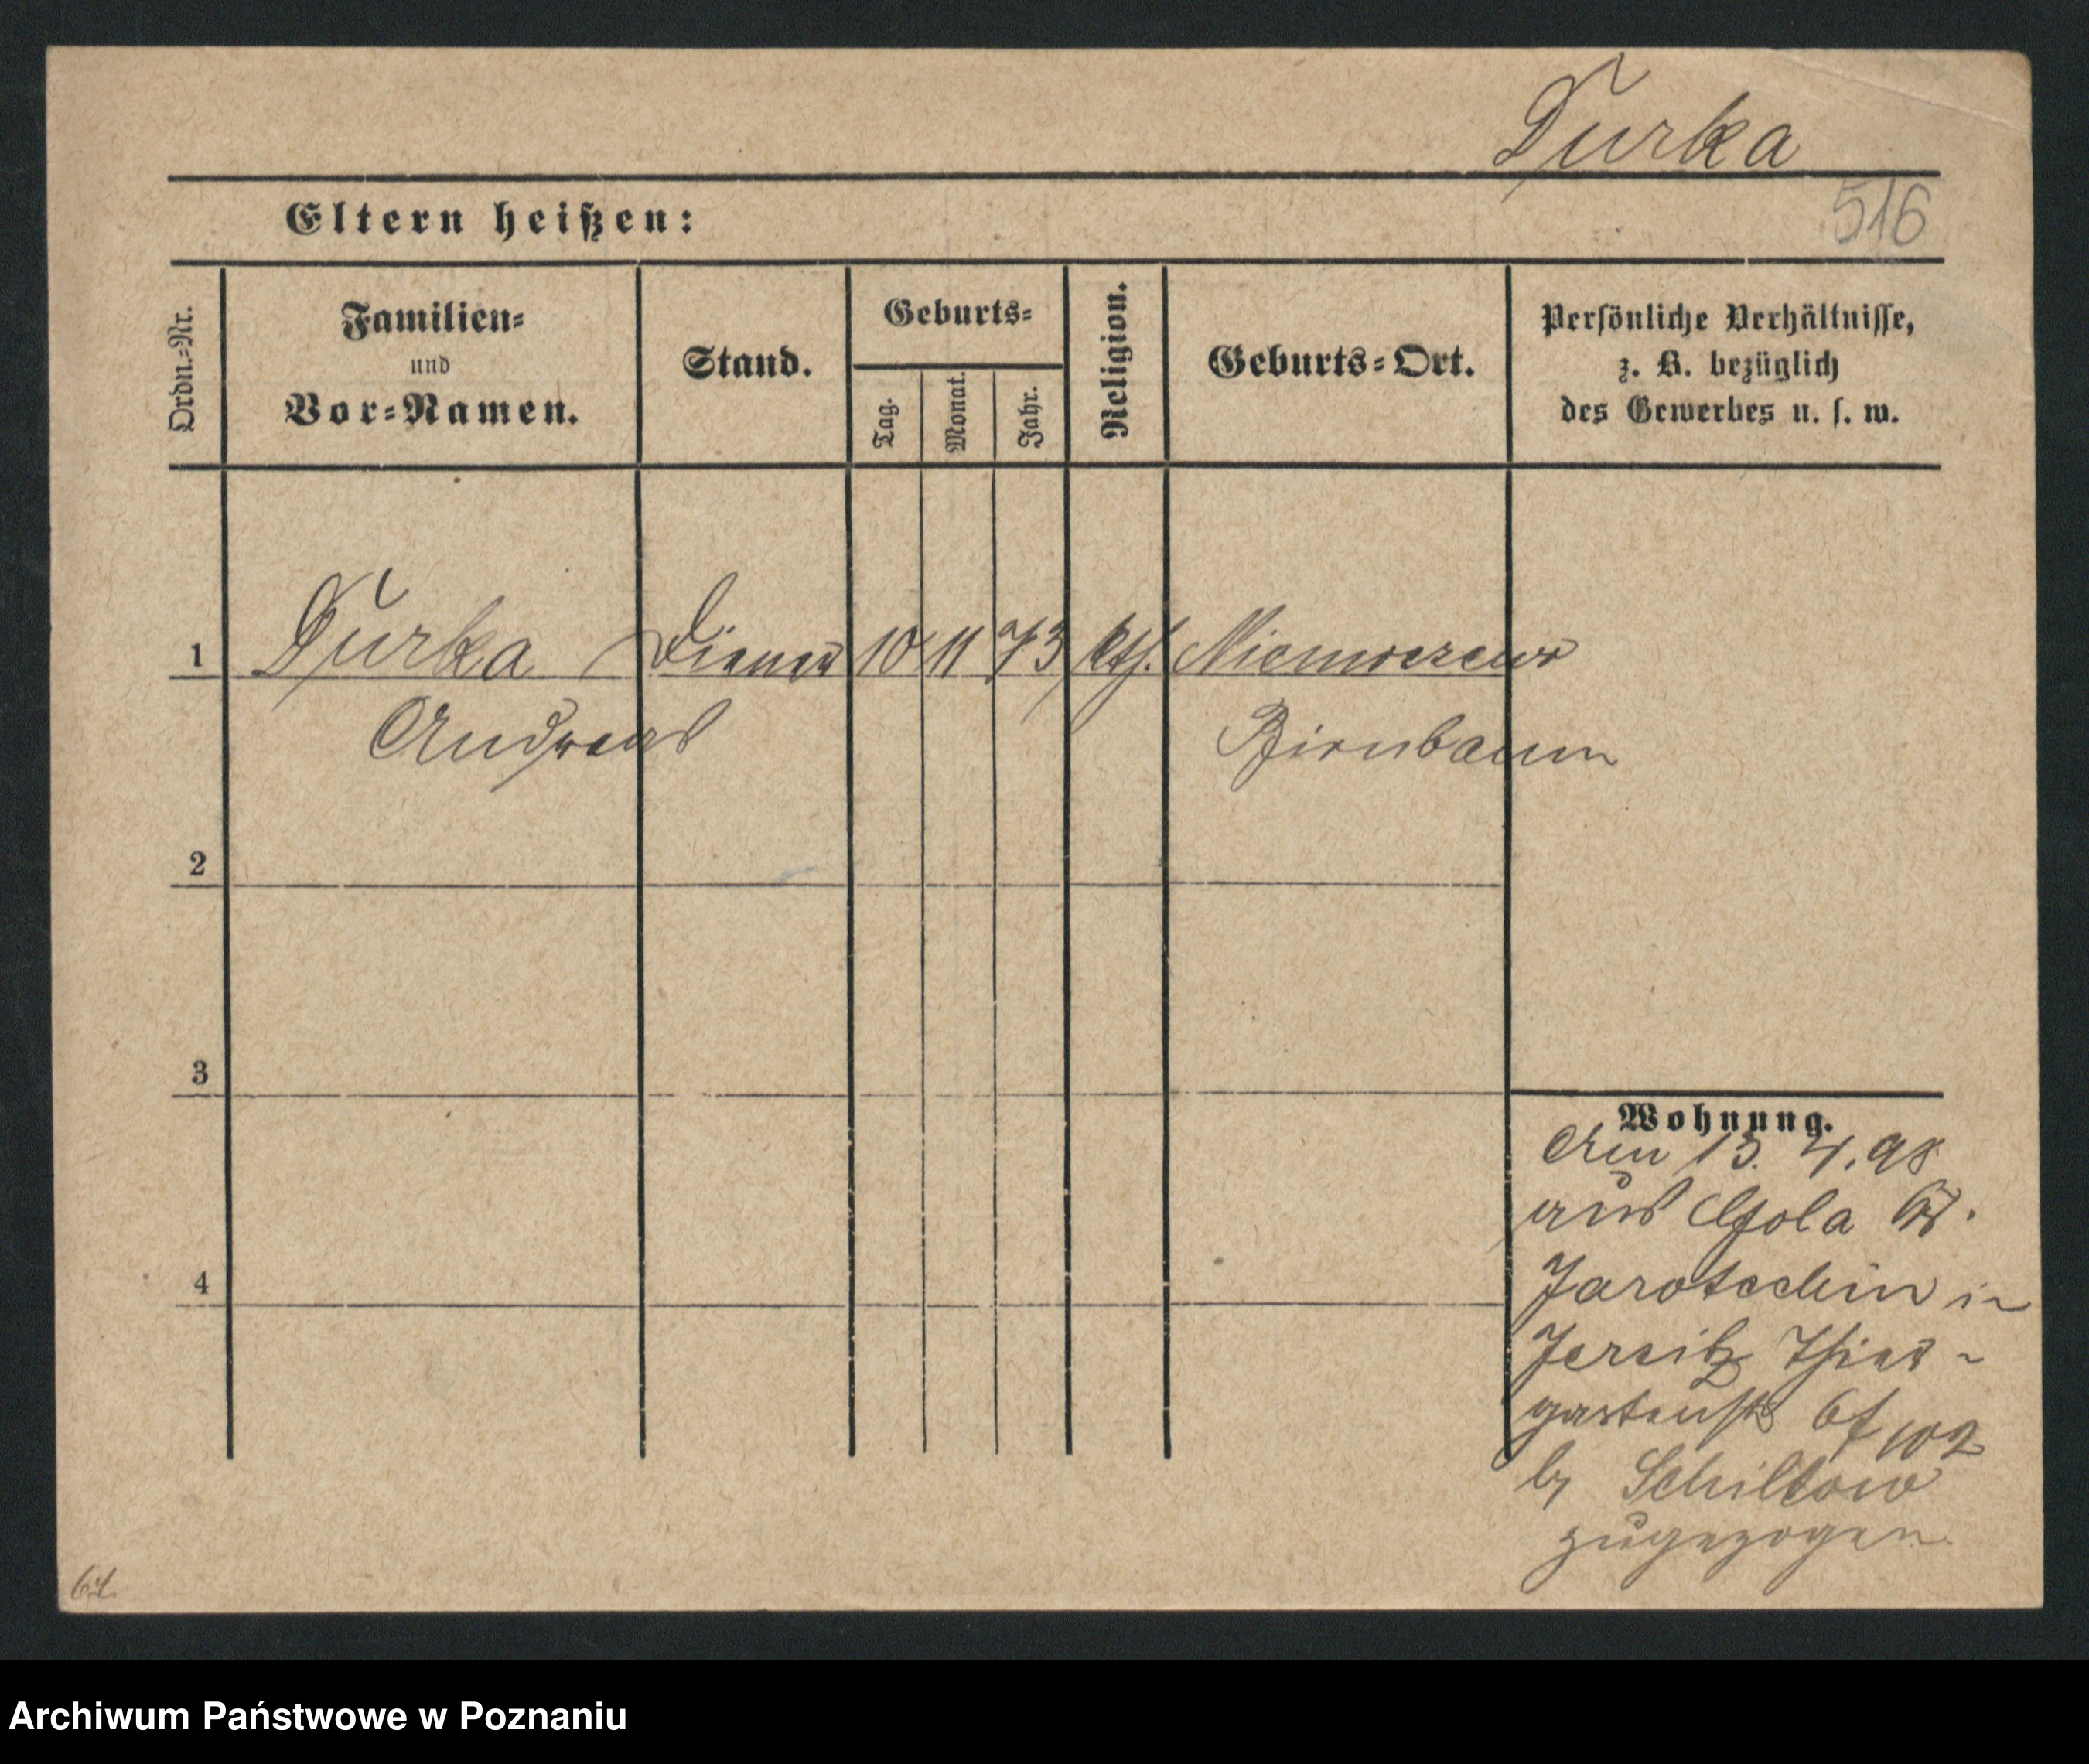 Durka
516
Eltern heißen:
Ordn.-Nr.
Familien-
und
Vor-Namen.
Stand.
Geburts-
Tag.
Monat.
Jahr.
Religion.
Geburts-Ort.
Persönliche Verhältnisse,
z. B. bezüglich
des Gewerbes u. s. w.
1 Durka Diener 10 11 73 kth.
Andreas Birnbaum
2
3
4
Wohnung.
Am 13. 4. 98
aus Gola Kr.
Jarotschin in
Jersitz Thier-
gartenstr
b/ Schiltow
zugezogen
Archiwum Państwowe w Poznaniu